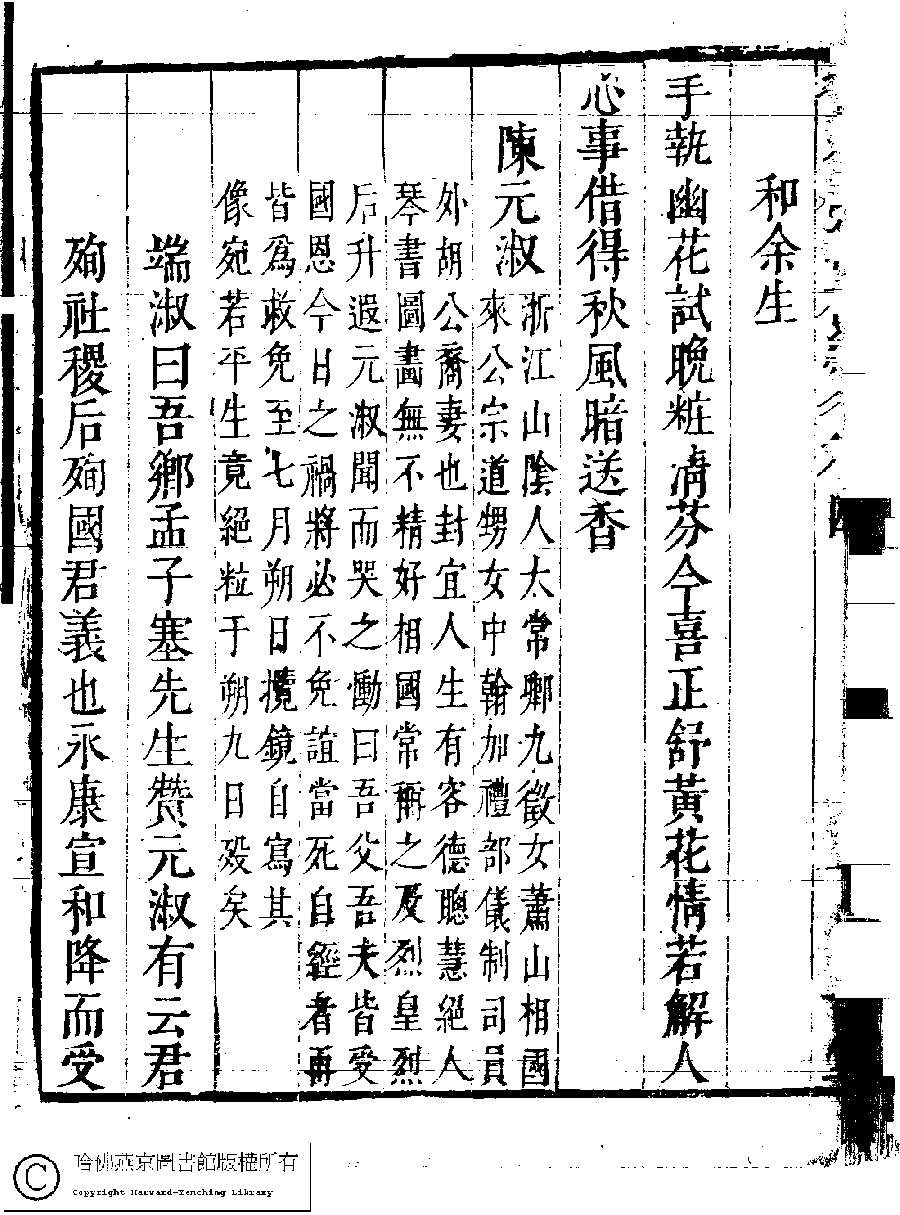 和余生
手執幽花試晚粧清芬今喜正舒黃花情若解人
心事借得秋風暗送香
陳元淑
浙江山陰人太常卿九徵女蕭山相國
來公宗道甥女中翰加禮部儀制司員
外胡公裔妻也封宜人生有容德聰慧絕人
琴書圖畵無不精好相國常稱之及烈皇烈
后升遐元淑聞而哭之慟曰吾父吾夫皆受
國恩今日之禍將必不免誼當死自經者再
皆爲救免至七月朔日攬鏡自寫其
像宛若平生竟絕粒于朔九日歿矣
端淑曰吾鄉孟子塞先生贊元淑有云君
殉社稷后殉國君義也永康宣和降而受
哈佛燕京圖書館版權所有
Copyright Harvard-Yenching Library